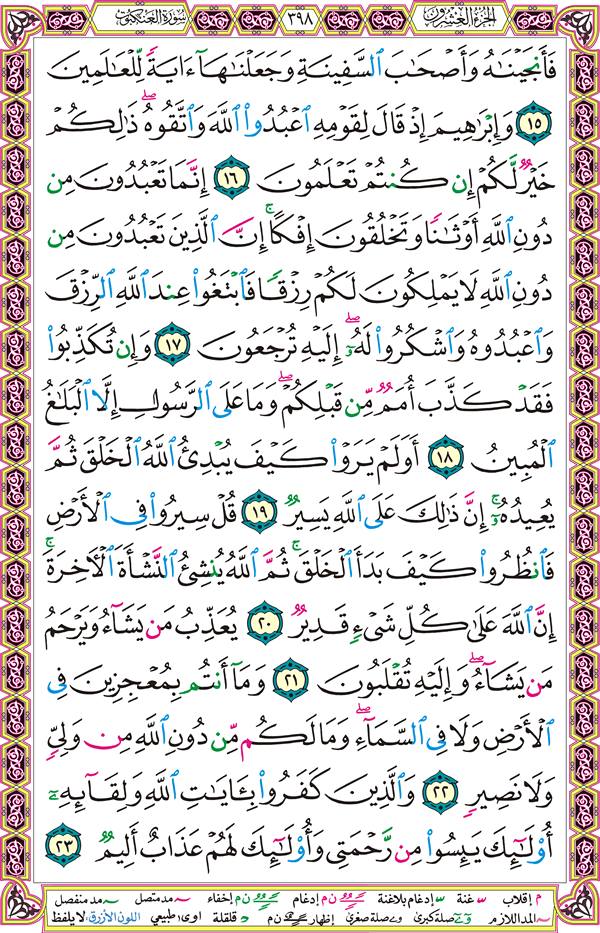 الجزء العشرون ٣٩٨ سورة العنكبوت
فَأَنجَيْنَٰهُ وَأَصْحَٰبَ ٱلسَّفِينَةِ وَجَعَلْنَٰهَآ ءَايَةً لِّلْعَٰلَمِينَ
١٥ وَإِبْرَٰهِيمَ إِذْ قَالَ لِقَوْمِهِ ٱعْبُدُوا۟ ٱللَّهَ وَٱتَّقُوهُ ۖ ذَٰلِكُمْ
خَيْرٌ لَّكُمْ إِن كُنتُمْ تَعْلَمُونَ ١٦ إِنَّمَا تَعْبُدُونَ مِن
دُونِ ٱللَّهِ أَوْثَٰنًا وَتَخْلُقُونَ إِفْكًا ۚ إِنَّ ٱلَّذِينَ تَعْبُدُونَ مِن
دُونِ ٱللَّهِ لَا يَمْلِكُونَ لَكُمْ رِزْقًا فَٱبْتَغُوا۟ عِندَ ٱللَّهِ ٱلرِّزْقَ
وَٱعْبُدُوهُ وَٱشْكُرُوا۟ لَهُۥٓ ۖ إِلَيْهِ تُرْجَعُونَ ١٧ وَإِن تُكَذِّبُوا۟
فَقَدْ كَذَّبَ أُمَمٌ مِّن قَبْلِكُمْ ۖ وَمَا عَلَى ٱلرَّسُولِ إِلَّا ٱلْبَلَٰغُ
ٱلْمُبِينُ ١٨ أَوَلَمْ يَرَوْا۟ كَيْفَ يُبْدِئُ ٱللَّهُ ٱلْخَلْقَ ثُمَّ
يُعِيدُهُۥٓ ۚ إِنَّ ذَٰلِكَ عَلَى ٱللَّهِ يَسِيرٌ ١٩ قُلْ سِيرُوا۟ فِى ٱلْأَرْضِ
فَٱنظُرُوا۟ كَيْفَ بَدَأَ ٱلْخَلْقَ ۚ ثُمَّ ٱللَّهُ يُنشِئُ ٱلنَّشْأَةَ ٱلْـَٔاخِرَةَ ۚ
إِنَّ ٱللَّهَ عَلَىٰ كُلِّ شَىْءٍ قَدِيرٌ ٢٠ يُعَذِّبُ مَن يَشَآءُ وَيَرْحَمُ
مَن يَشَآءُ ۖ وَإِلَيْهِ تُقْلَبُونَ ٢١ وَمَآ أَنتُم بِمُعْجِزِينَ فِى
ٱلْأَرْضِ وَلَا فِى ٱلسَّمَآءِ ۖ وَمَا لَكُم مِّن دُونِ ٱللَّهِ مِن وَلِىٍّ
وَلَا نَصِيرٍ ٢٢ وَٱلَّذِينَ كَفَرُوا۟ بِـَٔايَٰتِ ٱللَّهِ وَلِقَآئِهِۦٓ
أُو۟لَٰٓئِكَ يَئِسُوا۟ مِن رَّحْمَتِى وَأُو۟لَٰٓئِكَ لَهُمْ عَذَابٌ أَلِيمٌ ٢٣
م إقلاب غنة إدغام بلاغنة ن م إدغام ن م إخفاء مد متصل مد منفصل
المد اللازم صلة كبرى صلة صغرى إظهار ن م قلقلة اوى طبيعي اللون الأزرق لا يلفظ